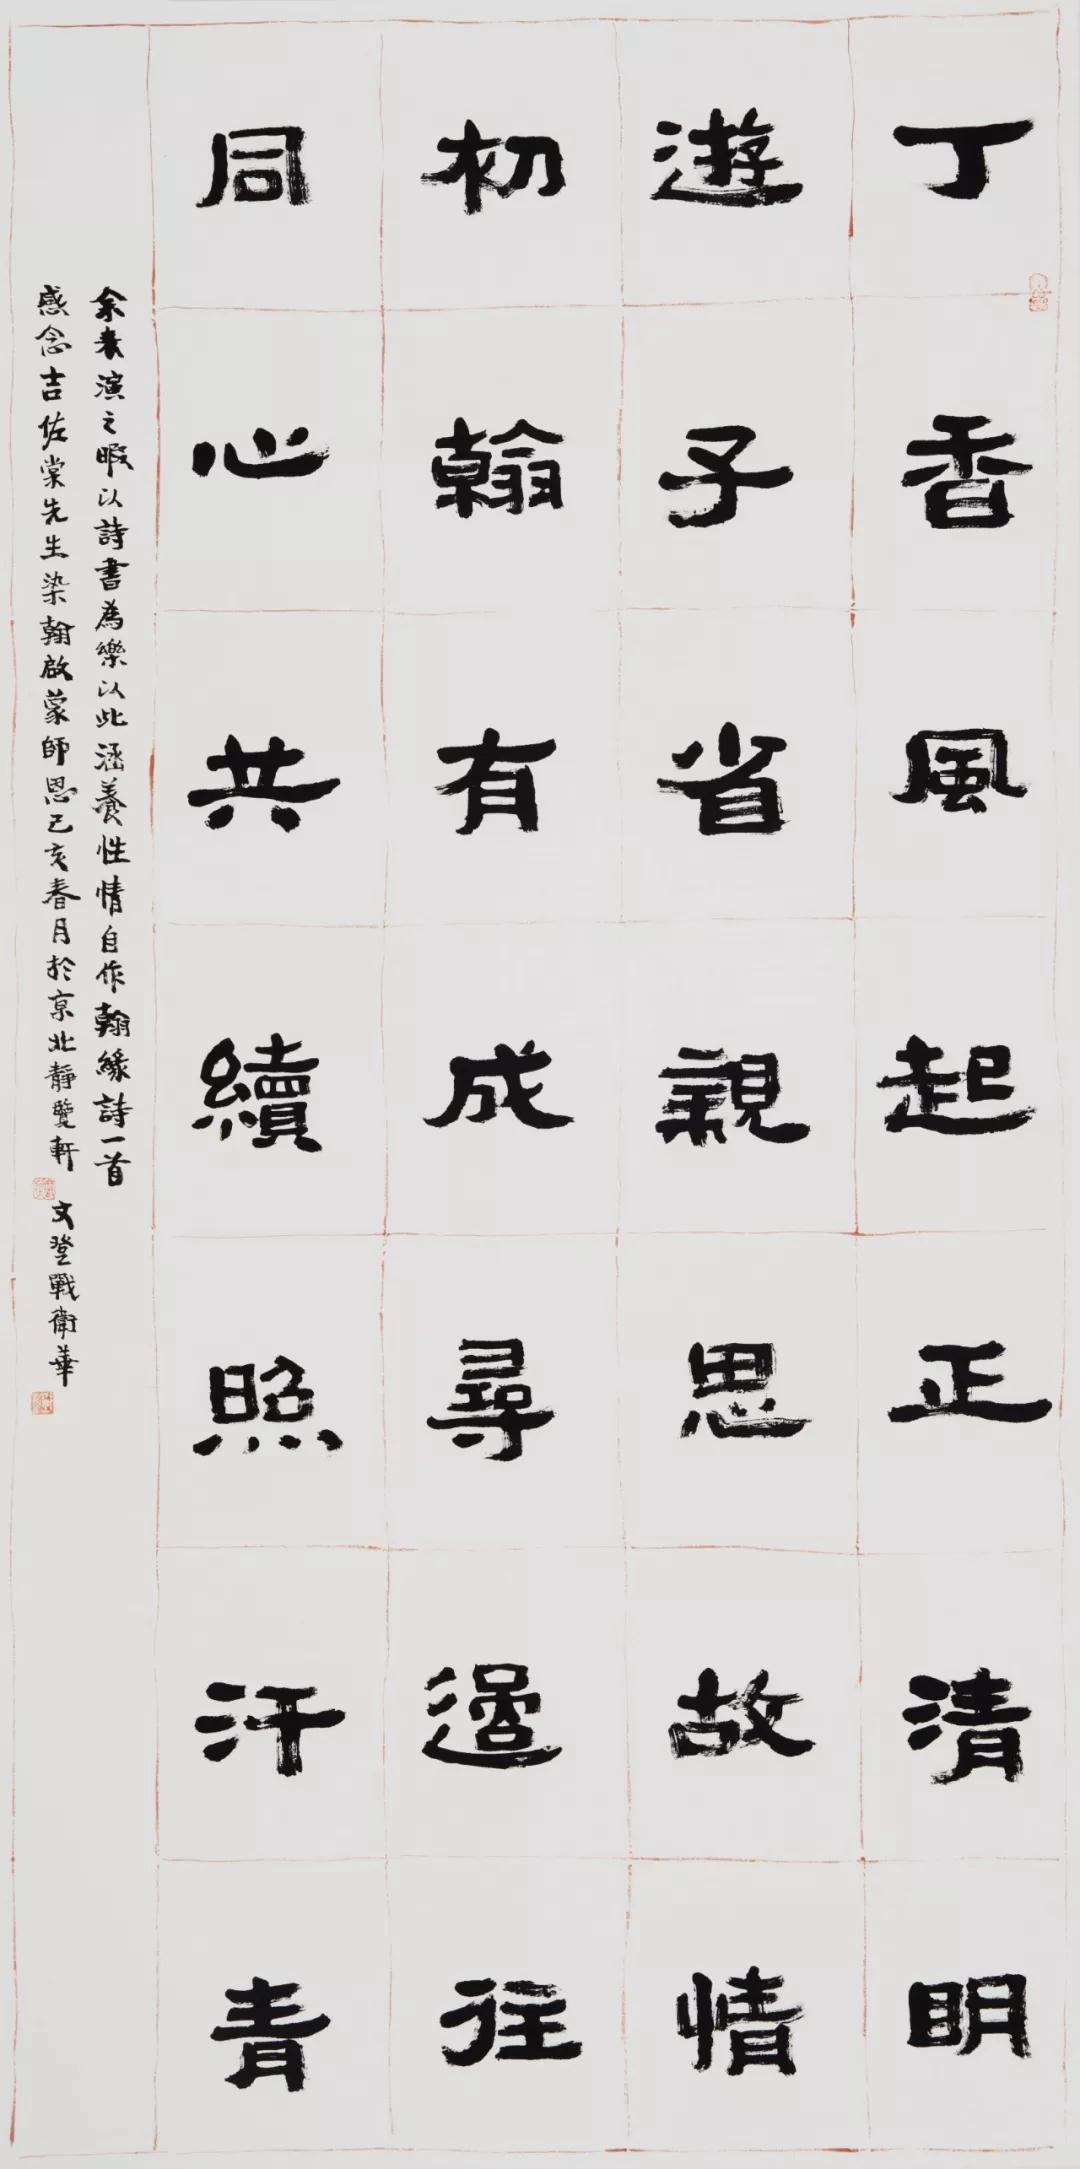 丁香風起正清明
遊子省親思故情
初翰有成尋過往
同心共續照汗青
余表演之暇以詩書為樂以此涵養性情自作翰緣詩一首
感念吉佐棠先生染翰啟蒙師恩己亥春月於京北靜覽軒
文登戰衛華